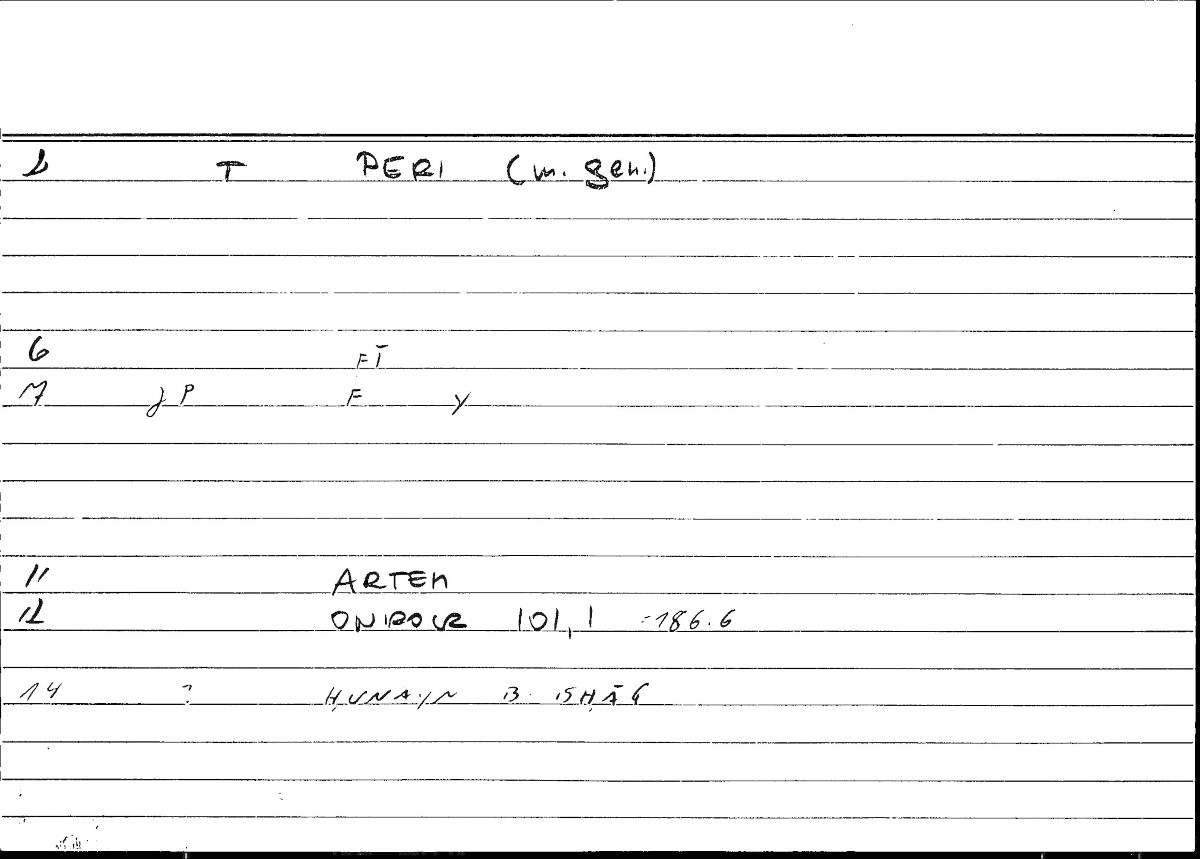 T PERI (m. gen.)
6 FĪ
7 J P F Y
11 ARTEM
12 ONIROCR 101,1 =186.6
14 ? ḤUNAYN B. ISḤĀQ